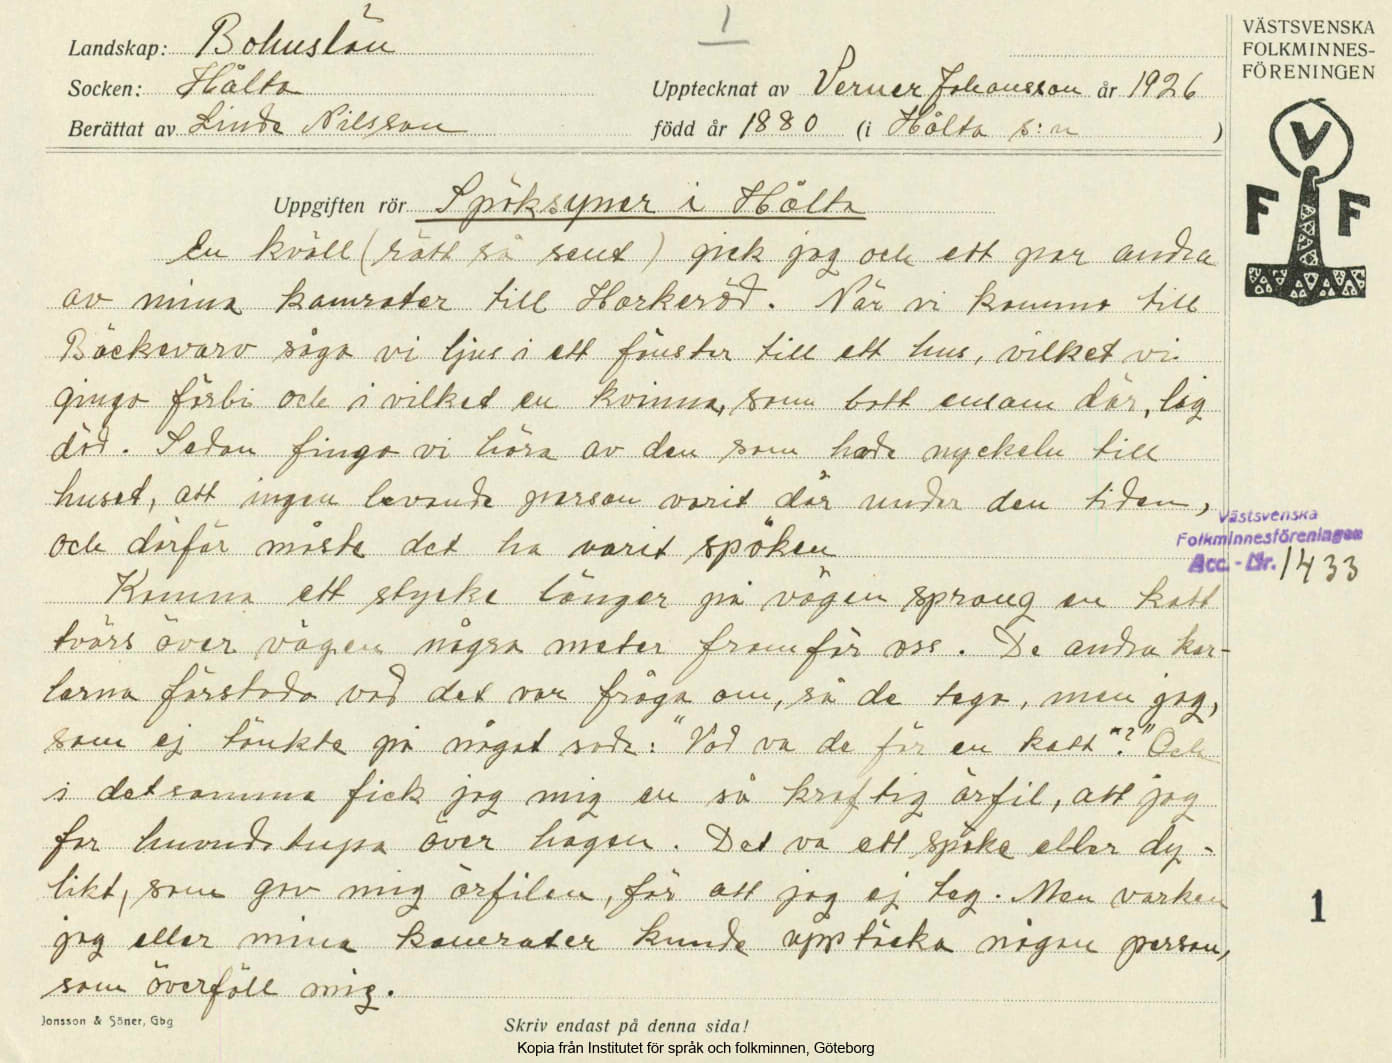 1
Landskap: Bohuslän
Socken: Hålta
Upptecknat av Verner Johansson år 1926
Berättat av Linde Nilsson
född år 1880 (i Hålta s:n )
VÄSTSVENSKA
FOLKMINNES-
FÖRENINGEN
V
F F
Uppgiften rör Spöksyner i Hålta
En kväll (rätt så sent) gick jag och ett par andra
av mina kamrater till Harkeröd. När vi kommo till
Bäckevarv sågo vi ljus i ett fönster till ett hus, vilket vi
gingo förbi och i vilket en kvinna, som bott ensam där, låg
död. Sedan fingo vi höra av den som hade nyckeln till
huset, att ingen levande person varit där under den tiden,
och därför måste det ha varit spöken
Komna ett stycke länger på vägen sprang en katt
tvärs över vägen några meter framför oss. De andra kar-
larna förstodo vad det var fråga om, så de tego, men jag,
som ej tänkte på något sade: "Vad va de för en katt"?" Och
i detsamma fick jag mig en så kraftig örfil, att jag
for huvudstupa över hagen. Det va ett spöke eller dy-
likt, som gav mig örfilen, för att jag ej teg. Men varken
jag eller mina kamrater kunde upptäcka någon person,
som överföll mig.
Västsvenska
Folkminnesföreningen
Acc. - Nr. 1433
1
Jonsson & Söner, Gbg
Skriv endast på denna sida!
Kopia från Institutet för språk och folkminnen, Göteborg